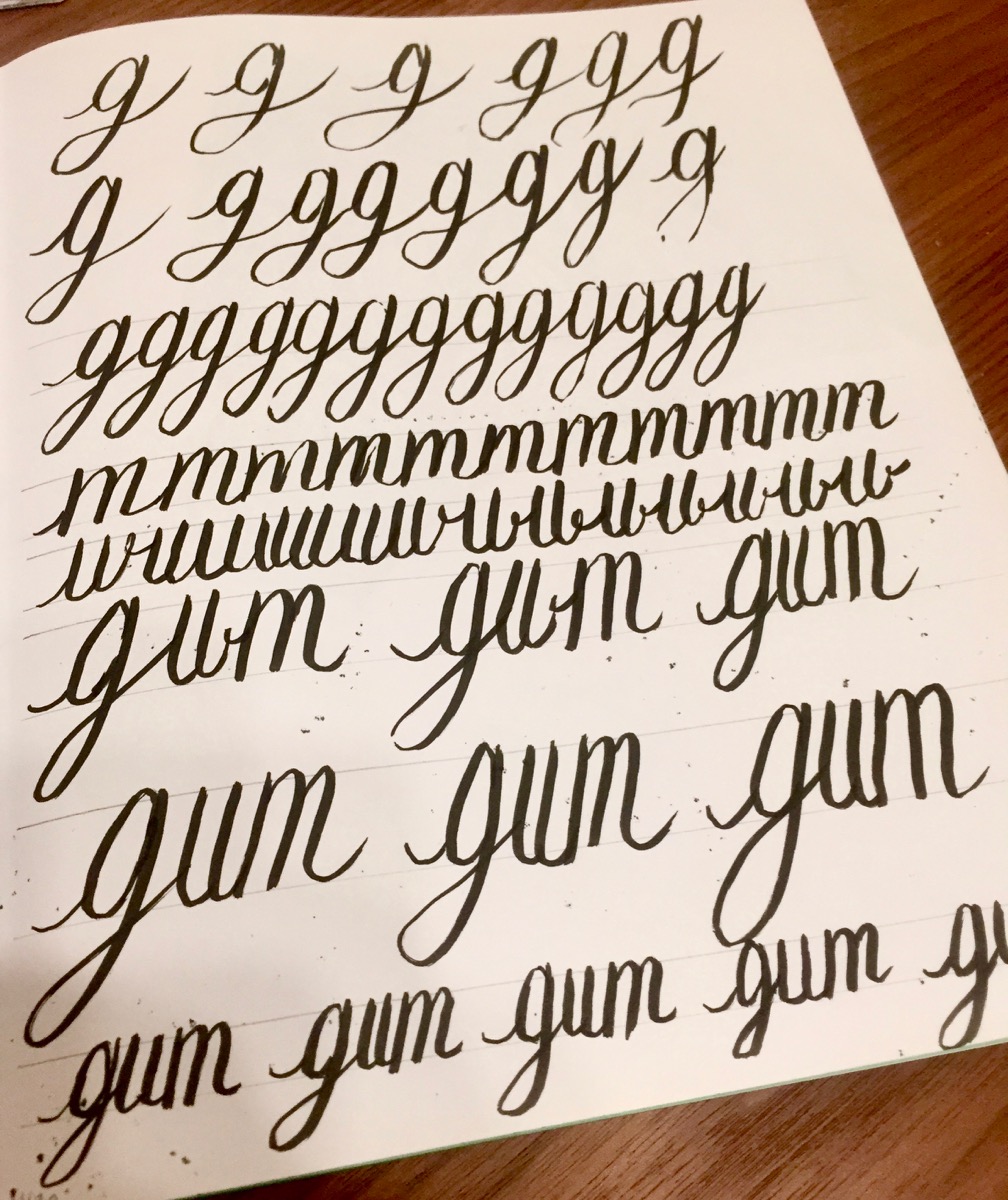 g g g g g g
g g g g g g g g
ggggggggggggg
mmmmmmmmmmm
uuuuuuuuuuuuu
gum gum gum
gum gum gum
gum gum gum gum gu